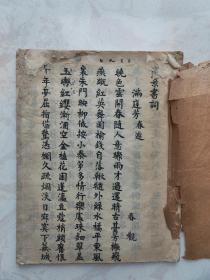 景書詞
滿庭芳 春遊
觀
曉色雲開春隨人意驟雨才過還晴古臺芳榭飛
燕蹴紅英舞困榆錢自落鞦韆外綠水橋平東風
裏朱門映柳低按小秦箏多情行樂處珠鈿翠蓋
玉轡紅纓漸酒空金榼花困蓬瀛荳蔻梢頭舊恨
十年夢屈指堪驚憑闌久疏煙淡日寂寞下蕪城